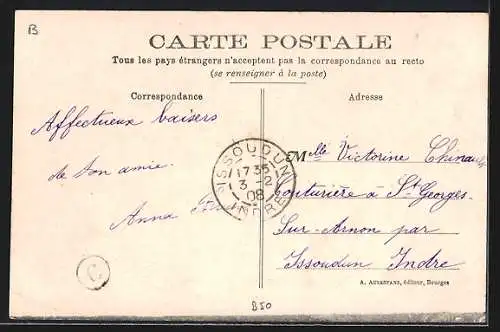 B
CARTE POSTALE
Tous les pays étrangers n'acceptent pas la correspondance au recto
(se renseigner à la poste)
Correspondance
Affectueux baisers
de ton amie.
Anna
ISSOUDUN
17 35
3 -2
08
INDRE
C
Adresse
Melle Victorine
Couturière à St Georges
Sur-Arnon par
Issoudun Indre
A. AUXENFANS, éditeur, Bourges
B50